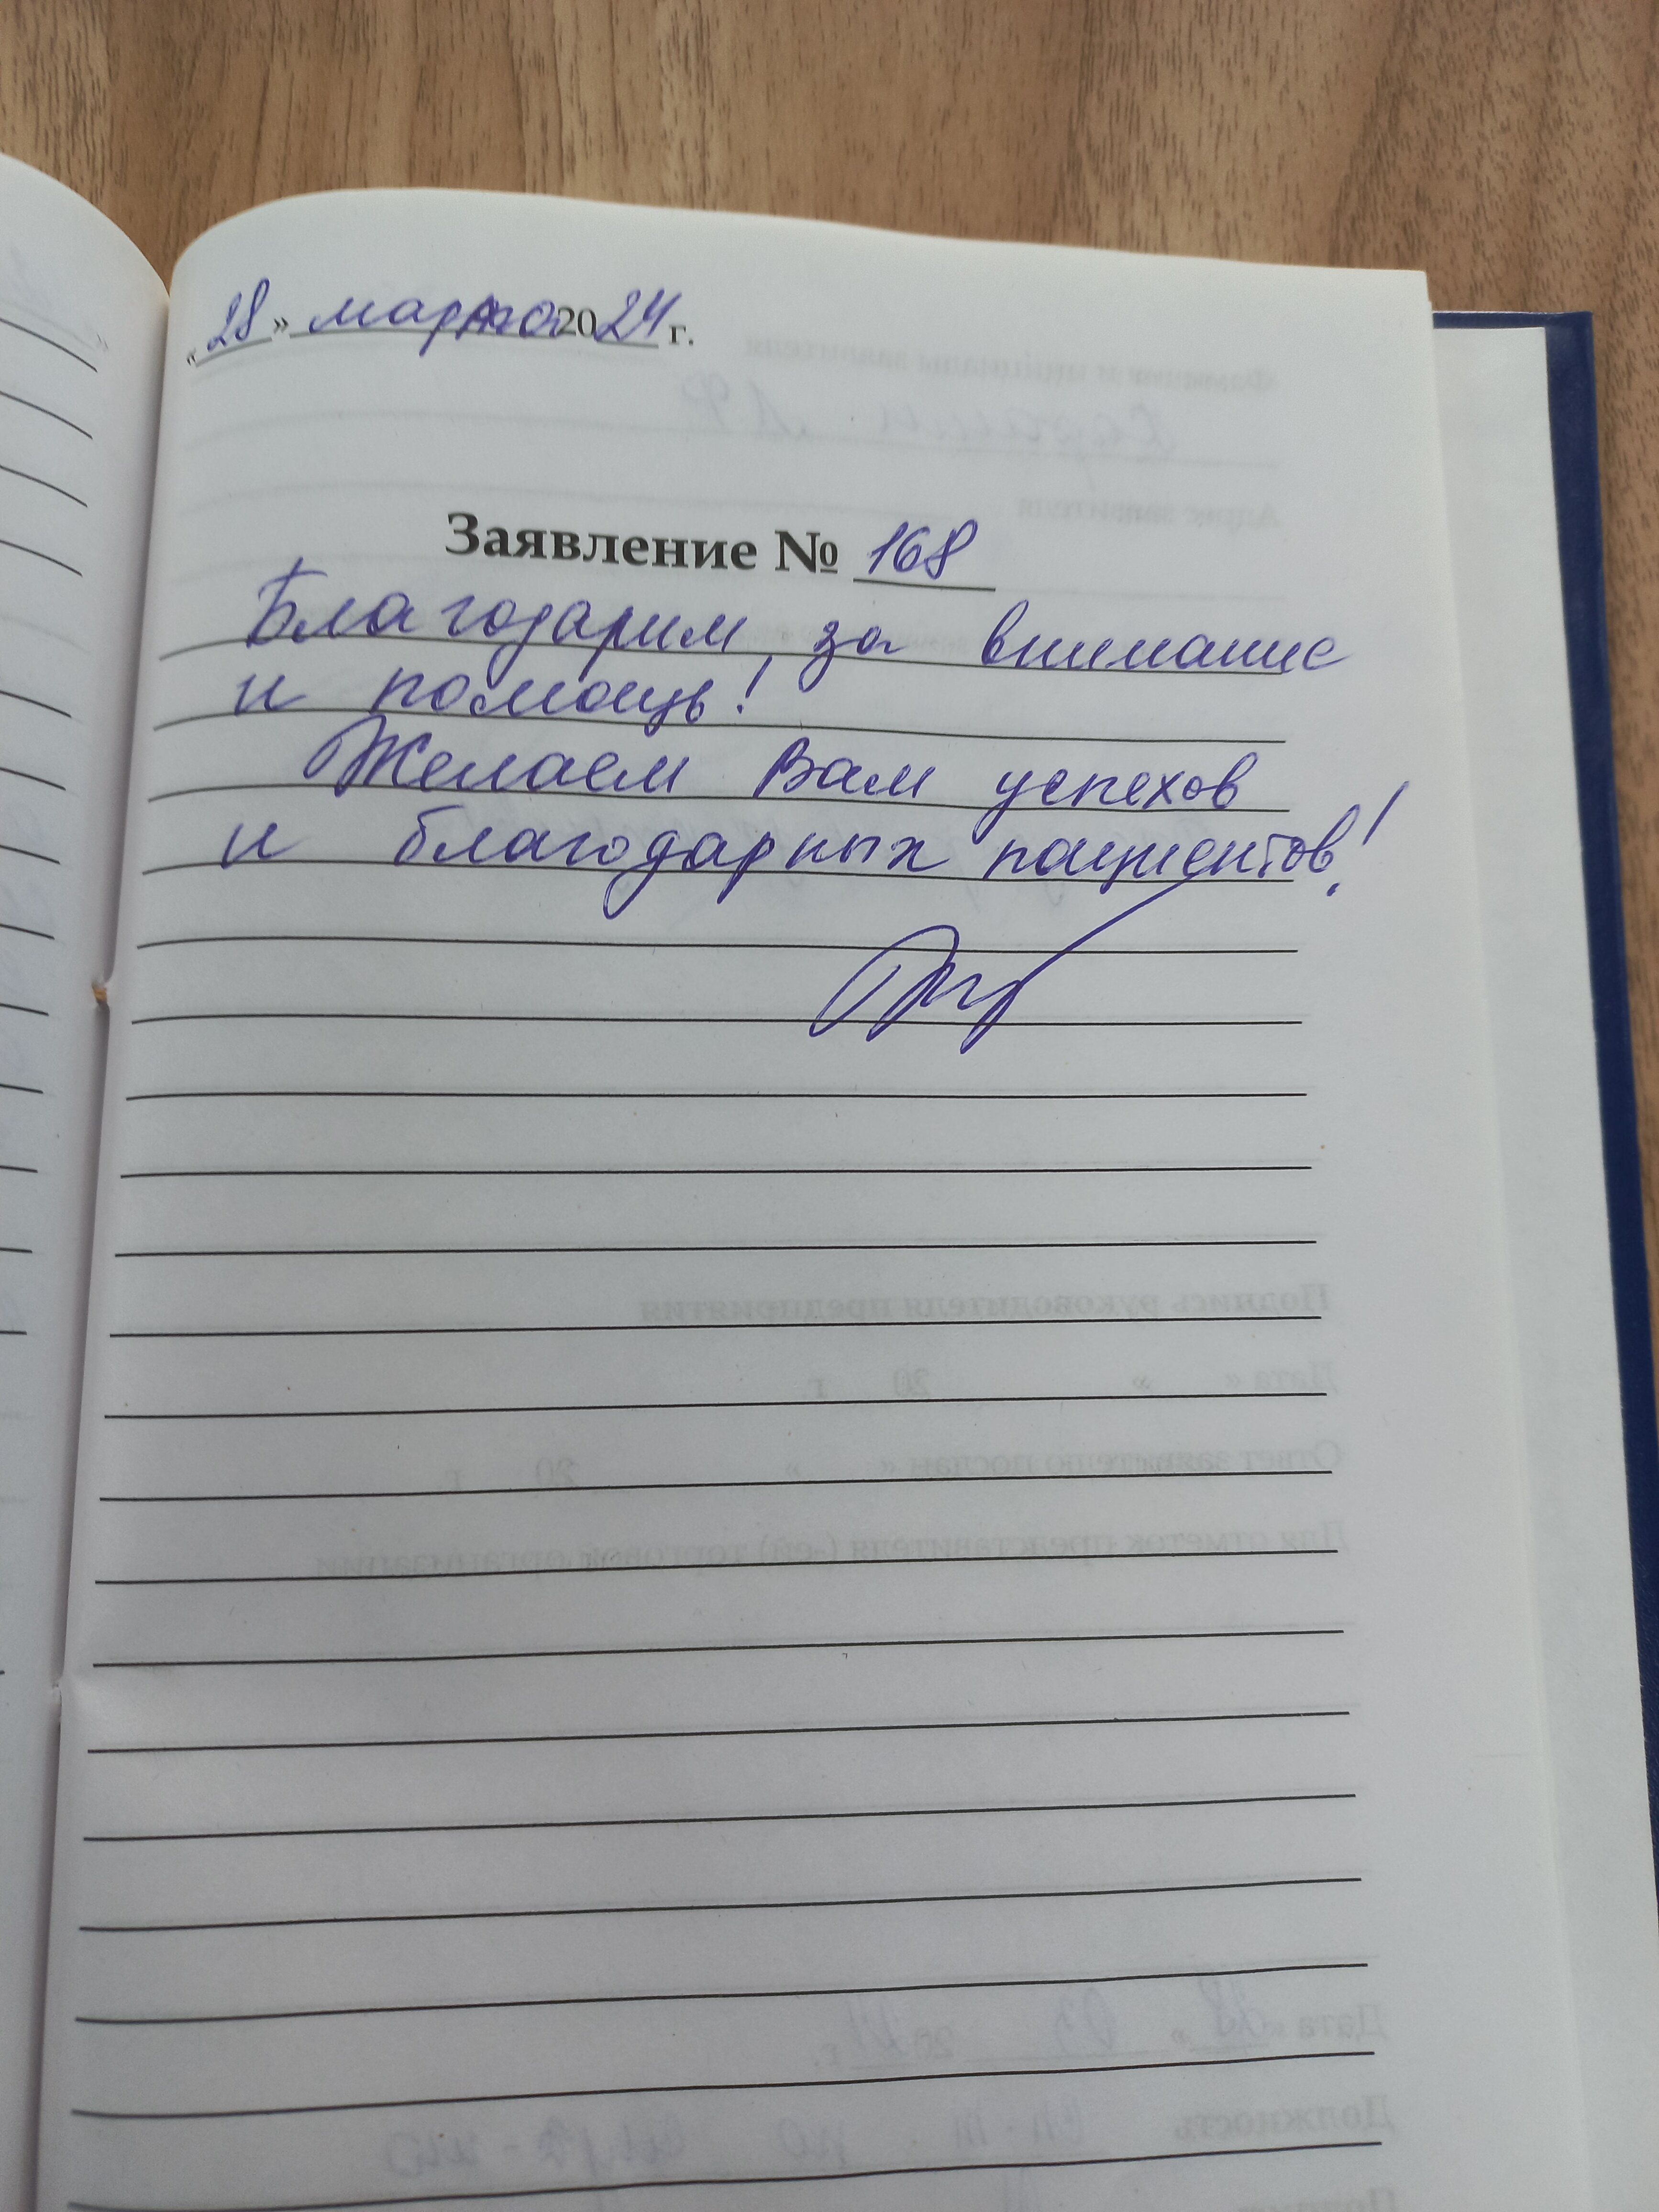 «28» марта 2024 г.
Заявление № 168
Благодарим за внимание
и помощь!
Желаем Вам успехов
и благодарных пациентов!